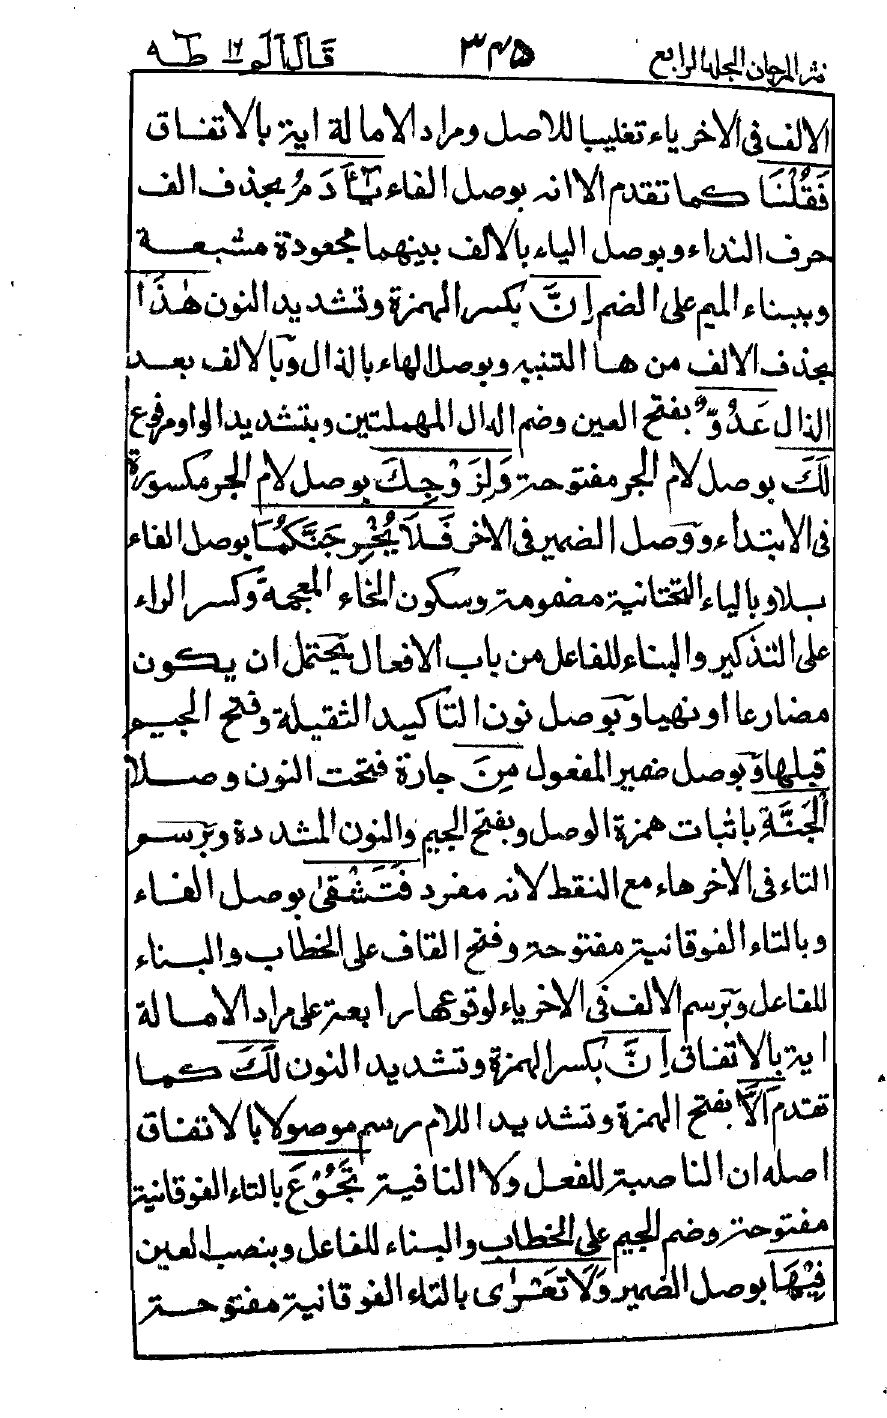 نثر المرجان المجلد الرابع ٣٤٥ قال الم ١٦ طه
الالف فى الاخر ياء تغليبا للاصل ومراد الامالة اية بالاتفاق
فَقُلْنَا كما تقدم الا انه بوصل الفاء يٰٓاٰدَمُ بحذف الف
حرف النداء وبوصل الياء بالالف بينهما مجعودة مشبعة
وببناء الميم على الضم اِنَّ بكسر الهمزة وتشديد النون هٰذَا
بحذف الالف من ها التنبيه وبوصل الهاء بالذال وبالالف بعد
الذال عَدُوٌّ بفتح العين وضم الدال المهملتين وبتشديد الواو مرفوع
لَكَ بوصل لام الجر مفتوحة وَلِزَوْجِكَ بوصل لام الجر مكسورة
فى الابتداء ووصل الضمير فى الاخر فَلَا يُخْرِجَنَّكُمَا بوصل الفاء
بلا وبالياء التحتانية مضمومة وسكون الخاء المعجمة وكسر الراء
على التذكير والبناء للفاعل من باب الافعال يحتمل ان يكون
مضارعا او نهيا وبوصل نون التاكيد الثقيلة وفتح الجيم
قبلها وبوصل ضمير المفعول مِنَ جارة فتحت النون وصلا
الْجَنَّةِ باثبات همزة الوصل وبفتح الجيم والنون المشددة وبرسم
التاء فى الاخر هاء مع النقط لانه مفرد فَتَشْقٰى بوصل الفاء
وبالتاء الفوقانية مفتوحة وفتح القاف على الخطاب والبناء
للفاعل وبرسم الالف فى الاخر ياء لوقوعها رابعة على مراد الامالة
اية بالاتفاق اِنَّ بكسر الهمزة وتشديد النون لَكَ كما
تقدم اَلَّا بفتح الهمزة وتشديد اللام رسم موصولا بالاتفاق
اصله ان الناصبة للفعل ولا النافية تَجُوْعَ بالتاء الفوقانية
مفتوحة وضم الجيم على الخطاب والبناء للفاعل وبنصب العين
فِيْهَا بوصل الضمير وَلَا تَعْرٰى بالتاء الفوقانية مفتوحة